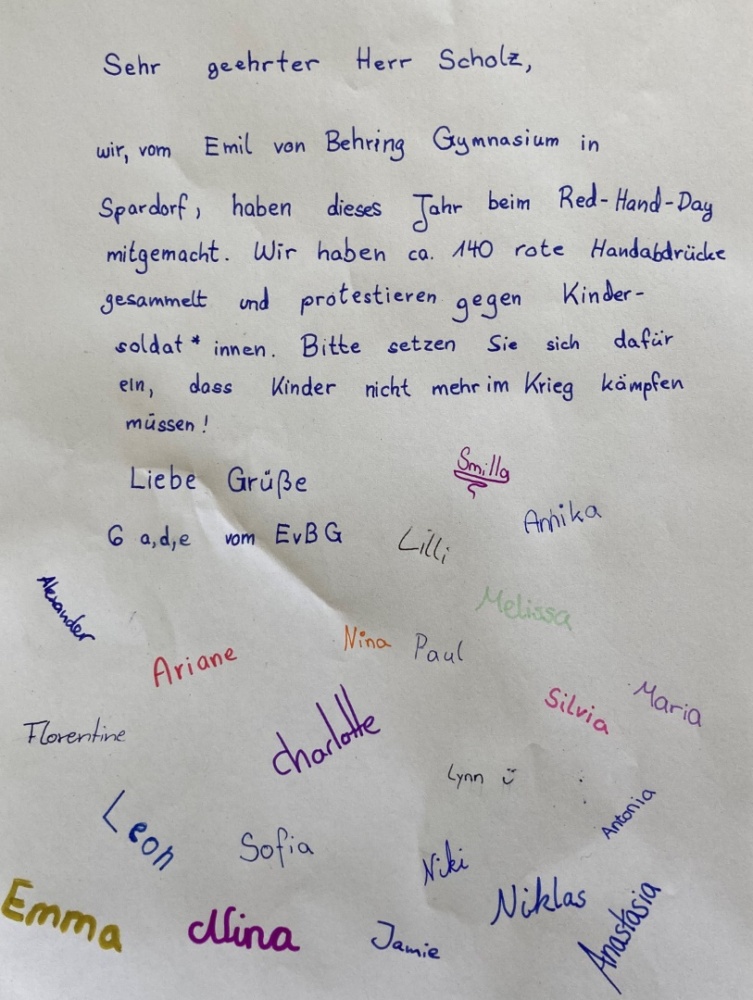 Sehr geehrter Herr Scholz,
wir, vom Emil von Behring Gymnasium in
Spardorf, haben dieses Jahr beim Red-Hand-Day
mitgemacht. Wir haben ca. 140 rote Handabdrücke
gesammelt und protestieren gegen Kinder-
soldat*innen. Bitte setzen Sie sich dafür
ein, dass Kinder nicht mehr im Krieg kämpfen
müssen!
Liebe Grüße
6 a,d,e vom EvBG
Smilla
Annika
Lilli
Alexander
Melissa
Ariane
Nina
Paul
Silvia
Maria
Florentine
Charlotte
Lynn
Leon
Sofia
Antonia
Niki
Emma
Nina
Jamie
Niklas
Anastasia